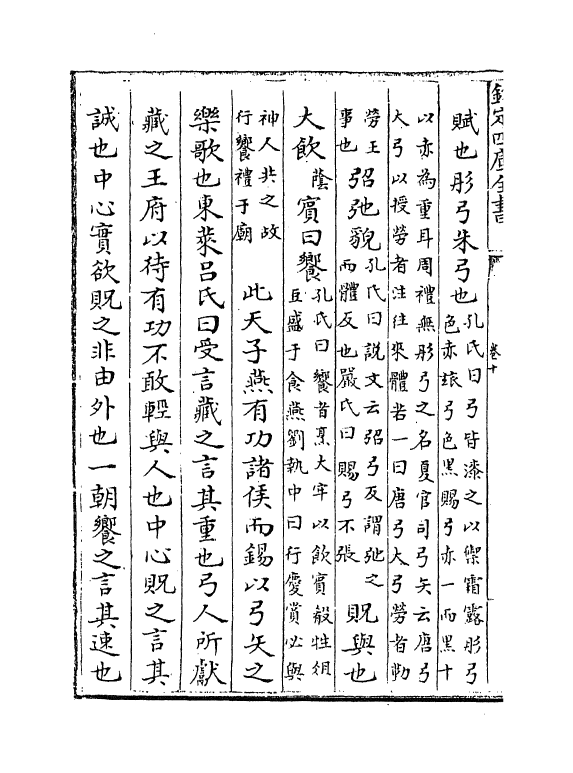 欽定四庫全書
卷十
賦也彤弓朱弓也孔氏曰弓皆漆之以禦霜露彤弓
色赤玈弓色黑賜弓赤一而黑十
以赤為重耳周禮無彤弓之名夏官司弓矢云唐弓
大弓以授勞者注往來體若一曰唐弓大弓勞者勤
勞王
事也弨弛貌孔氏曰說文云弨弓反謂弛之
而體反也嚴氏曰賜弓不張貺與也
大飲蔭賓曰饗孔氏曰饗者烹大牢以飲賓殽牲俎
豆盛于食燕劉執中曰行慶賞必與
神人共之故
行饗禮于廟此天子燕有功諸侯而錫以弓矢之
樂歌也東萊呂氏曰受言藏之言其重也弓人所獻
藏之王府以待有功不敢輕與人也中心貺之言其
誠也中心實欲貺之非由外也一朝饗之言其速也